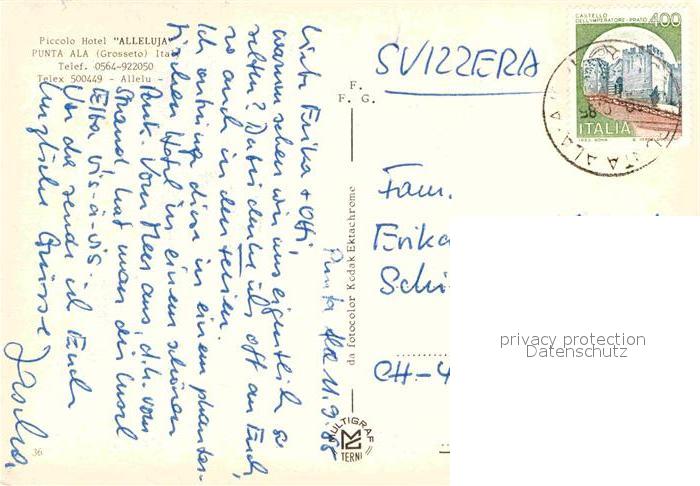 Piccolo Hotel "ALLELUJA"
PUNTA ALA (Grosseto) Ital
Telef. 0564-922050
Telex 500449 - Allelu -
F.
F. G.
SVIZZERA
CASTELLO
DELL'IMPERATORE - PRATO
400
ITALIA
PUNTA ALA
Fam.
Erika
Schi
CH-4
privacy protection
Datenschutz
da fotocolor Kodak Ektachrome
MULTIGRAF
TERNI
36
Punta Ala 11.9.85
Liebe Erika + Otti,
warum sehen wir uns eigentlich so
selten? Dabei denke ich oft an Euch,
so auch in den Ferien.
Ich verbringe diese in einem phantas-
tischen Hotel in einem schönen
Park. Vom Meer aus, d.h. vom
Strand, hat man die Insel
Elba vis-à-vis.
Von da sende ich Euch
herzliche Grüsse